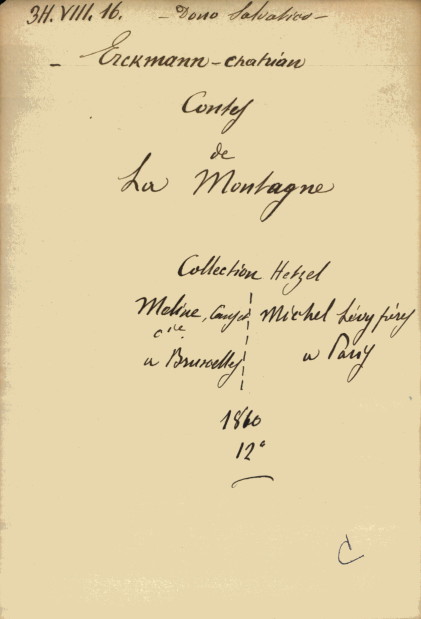 3H. VIII. 16. - Dono Salvatico -
- Erckmann - chatrian
Contes
de
La Montagne
Collection Hetzel
Meline, Cans et Michel Lévy frères
Cie
à Bruxelles à Paris
1860
12°
C